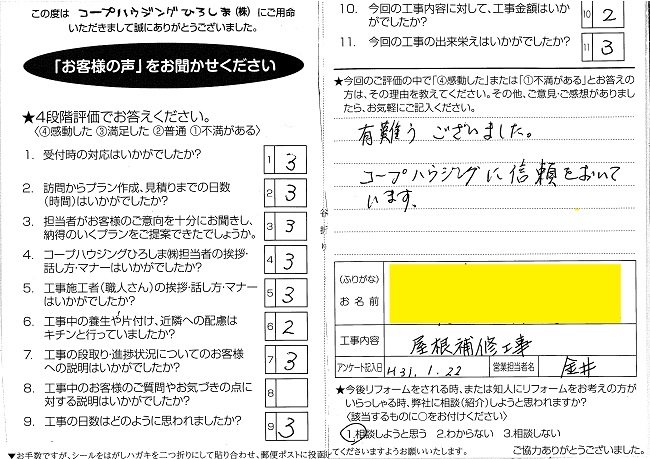 この度は コープハウジングひろしま(株) にご用命
いただきまして誠にありがとうございました。
「お客様の声」をお聞かせください
★4段階評価でお答えください。
〈④感動した ③満足した ②普通 ①不満がある〉
1. 受付時の対応はいかがでしたか?
1 3
2. 訪問からプラン作成、見積りまでの日数
(時間)はいかがでしたか?
2 3
3. 担当者がお客様のご意向を十分にお聞きし、
納得のいくプランをご提案できたでしょうか。
3 3
4. コープハウジングひろしま㈱担当者の挨拶・
話し方・マナーはいかがでしたか?
4 3
5. 工事施工者(職人さん)の挨拶・話し方・マナー
はいかがでしたか?
5 3
6. 工事中の養生や片付け、近隣への配慮は
キチンと行っていましたか?
6 2
7. 工事の段取り・進捗状況についてのお客様
への説明はいかがでしたか?
7 3
8. 工事中のお客様のご質問やお気づきの点に
対する説明はいかがでしたか?
8
9. 工事の日数はどのように思われましたか?
9 3
▼お手数ですが、シールをはがしハガキを二つ折りにして貼り合わせ、郵便ポストに投函してくださいますようお願いいたします。
谷折り
10. 今回の工事内容に対して、工事金額はいか
がでしたか?
10 2
11. 今回の工事の出来栄えはいかがでしたか?
11 3
★今回のご評価の中で「④感動した」または「①不満がある」とお答えの
方は、その理由を教えてください。その他、ご意見・ご感想がありまし
たら、お気軽にご記入ください。
有難う ございました。
コープハウジングに信頼をおいて
います。
(ふりがな)
お 名 前
工事内容 屋根補修工事
アンケート記入日 H31.1.22 営業担当者名 金井
★今後リフォームをされる時、または知人にリフォームをお考えの方が
いらっしゃる時、弊社に相談(紹介)しようと思われますか?
〈該当するものに○をお付けください〉
1.相談しようと思う 2.わからない 3.相談しない
ご協力ありがとうございました。